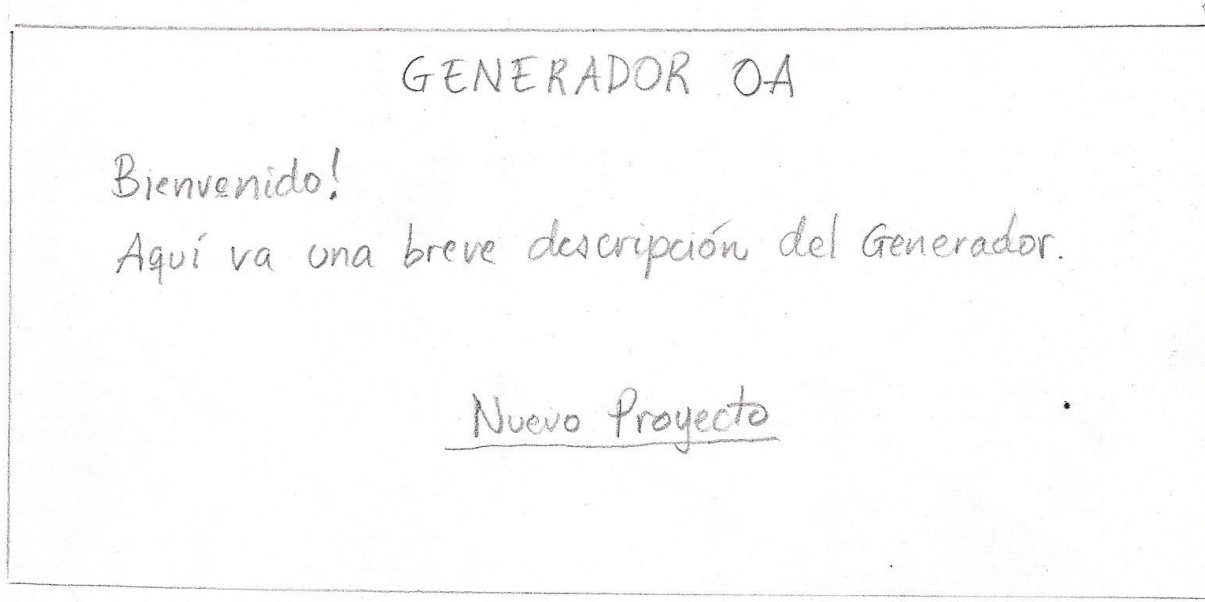 GENERADOR OA
Bienvenido!
Aquí va una breve descripción del Generador.
Nuevo Proyecto